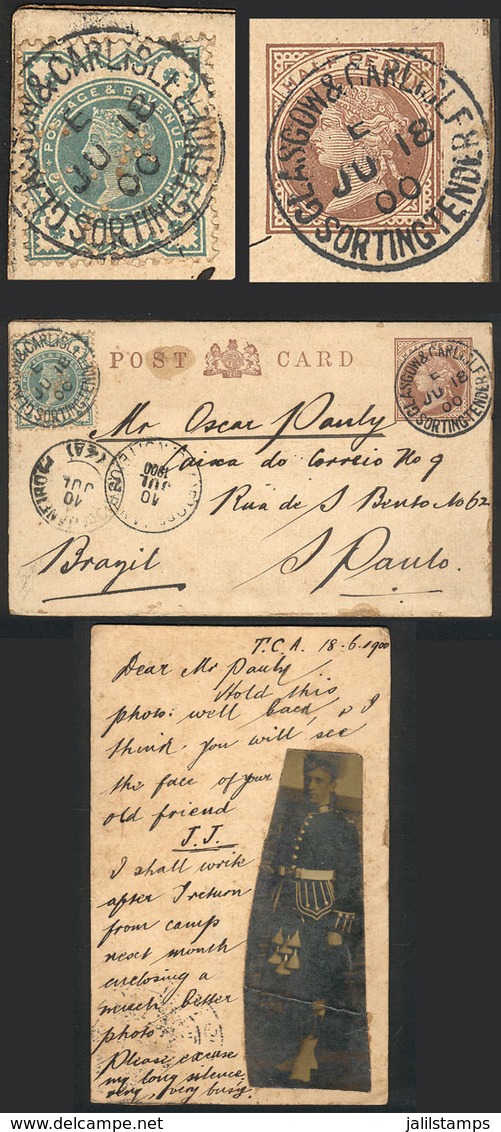 GLASGOW & CARLISLE
SORTING TENDER
E
JU 18
00
POSTAGE & REVENUE
GLASGOW & CARLISLE
SORTING TENDER
E
JU 18
00
HALF PENNY
POST CARD
GLASGOW & CARLISLE
SORTING TENDER
E
JU 18
00
GLASGOW & CARLISLE
SORTING TENDER
E
JU 18
00
Mr Oscar Pauly
Caixa do Correio No 9
Rua de S Bento No 62
Brazil
S Paulo.
10
JUL
1900
10
JUL
T.C.A. 18-6-1900
Dear Mr Pauly
Hold this
photo: well back & I
think you will see
the face of your
old friend
J.J.
I shall write
after I return
from camp
next month
enclosing a
much better
photo
Please excuse
my long silence
very, very busy.
www.delcampe.net
jalilstamps